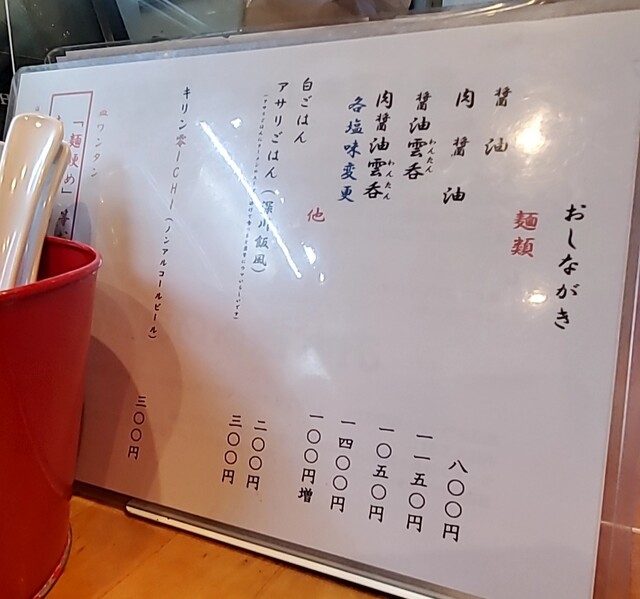 おしながき
麺類
醤油 八〇〇円
肉醤油 一一五〇円
醤油雲呑 一〇五〇円
わんたん
肉醤油雲呑 一四〇〇円
わんたん
各塩味変更 一〇〇円増
他
白ごはん 二〇〇円
アサリごはん（深川飯風） 三〇〇円
キリン零ICHI（ノンアルコールビール） 三〇〇円
皿ワンタン